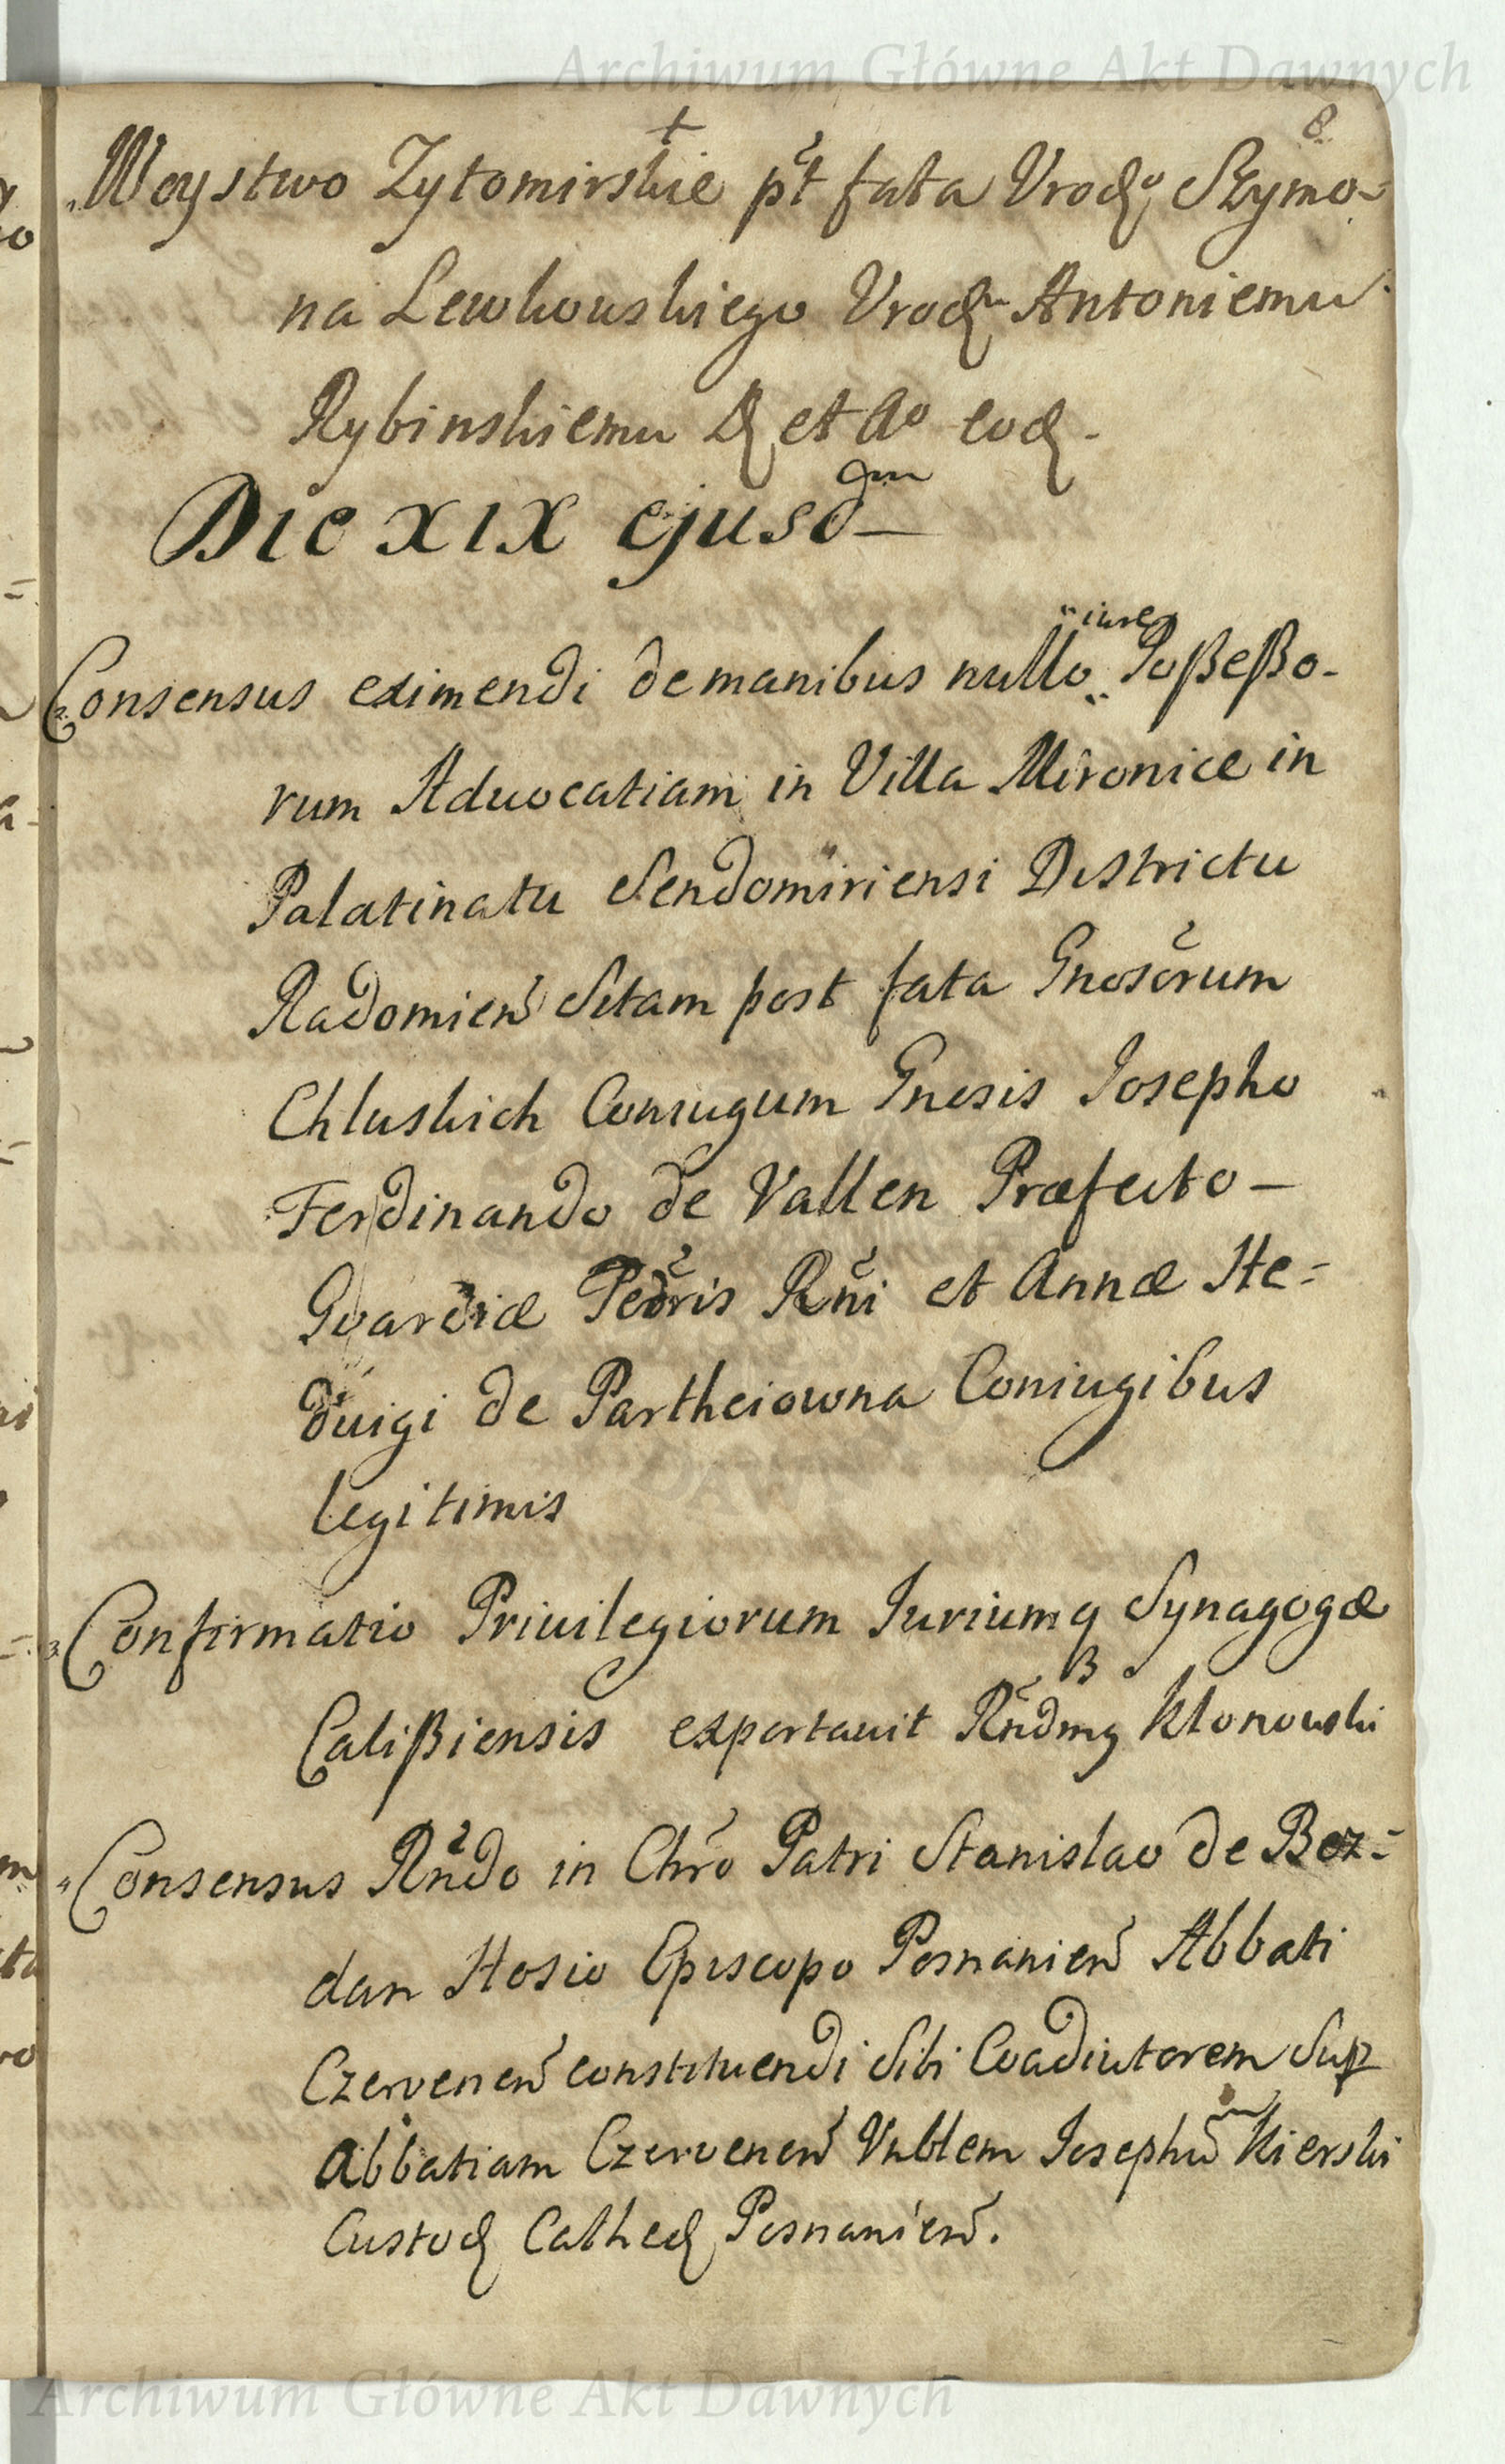 Archiwum Główne Akt Dawnych
8
Woystwo Zytomirskie pt fata Urod° Szymo-
na Lewkowskiego Urodm Antoniemu
Rybinskiemu D et A° eod.
Die XIX ejusdm
Consensus eximendi de manibus nullo iure Poßeßo-
rum Aduocatiam in Villa Mironice in
Palatinatu Sendomiriensi Districtu
Radomien Sitam post fata Gnosorum
Chluskich Coniugum Gnosis Josepho
Ferdinando de Vallen Præfecto
Gvardiæ Pedris Rni et Annæ He-
duigi de Partheiowna Coniugibus
legitimis
Confirmatio Priuilegiorum Juriumq Synagogæ
Calißiensis exportauit Rndmg Klonowski
Consensus Rndo in Chro Patri Stanislao de Bez-
dan Hosio Episcopo Posnanien Abbati
Czervenen constituendi Sibi Coadiutorem Sup
Abbatiam Czervenen Vnblem Josephum Kierski
Custod Cathed Posnanien.
Archiwum Główne Akt Dawnych